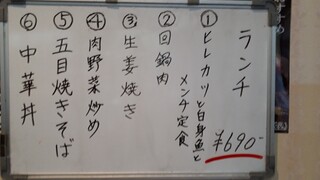 ランチ
¥690-
① ヒレカツと白身魚と
メンチ定食
② 回鍋肉
③ 生姜焼き
④ 肉野菜炒め
⑤ 五目焼きそば
⑥ 中華丼